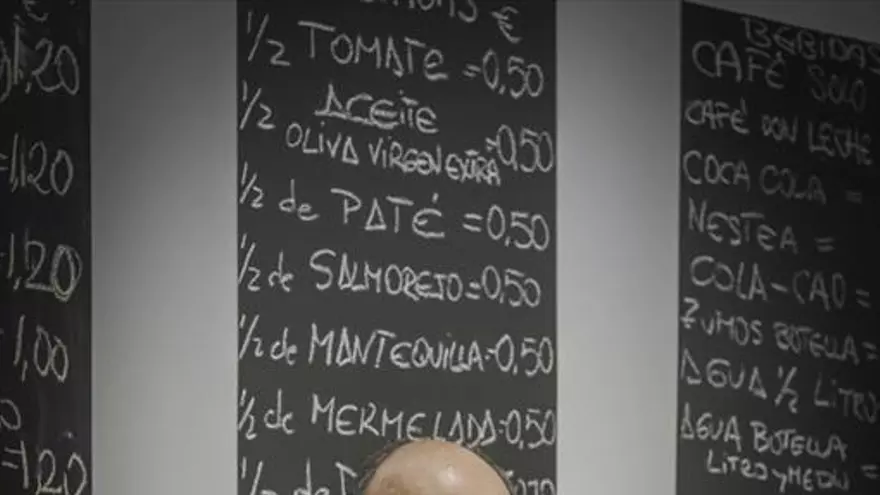 1,20
=1,120
1,20
1,00
=1,20
€
½ TOMATE =0,50
½ ACEITE
OLIVA VIRGEN EXTRA =0,50
½ de PATÉ =0,50
½ de SALMOREJO=0,50
½ de MANTEQUILLA=0,50
½ de MERMELADA=0,50
½ de
BEBIDAS
CAFÉ SOLO
CAFÉ CON LECHE
COCA COLA =
NESTEA =
COLA-CAO =
ZUMOS BOTELLA =
AGUA ½ LITRO
AGUA BOTELLA
LITRO Y MEDIO =